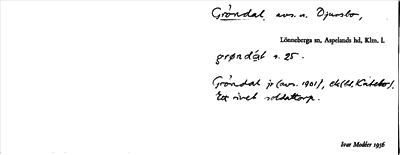 Gröndal, avs. u. Djursbo,
Lönneberga sn, Aspelands hd, Klm. l.
grøndal s. 25.
Gröndal jr (avs. 1901), ek(bl. Katebo).
Ett rivet soldattorp.
Ivar Modéer 1936